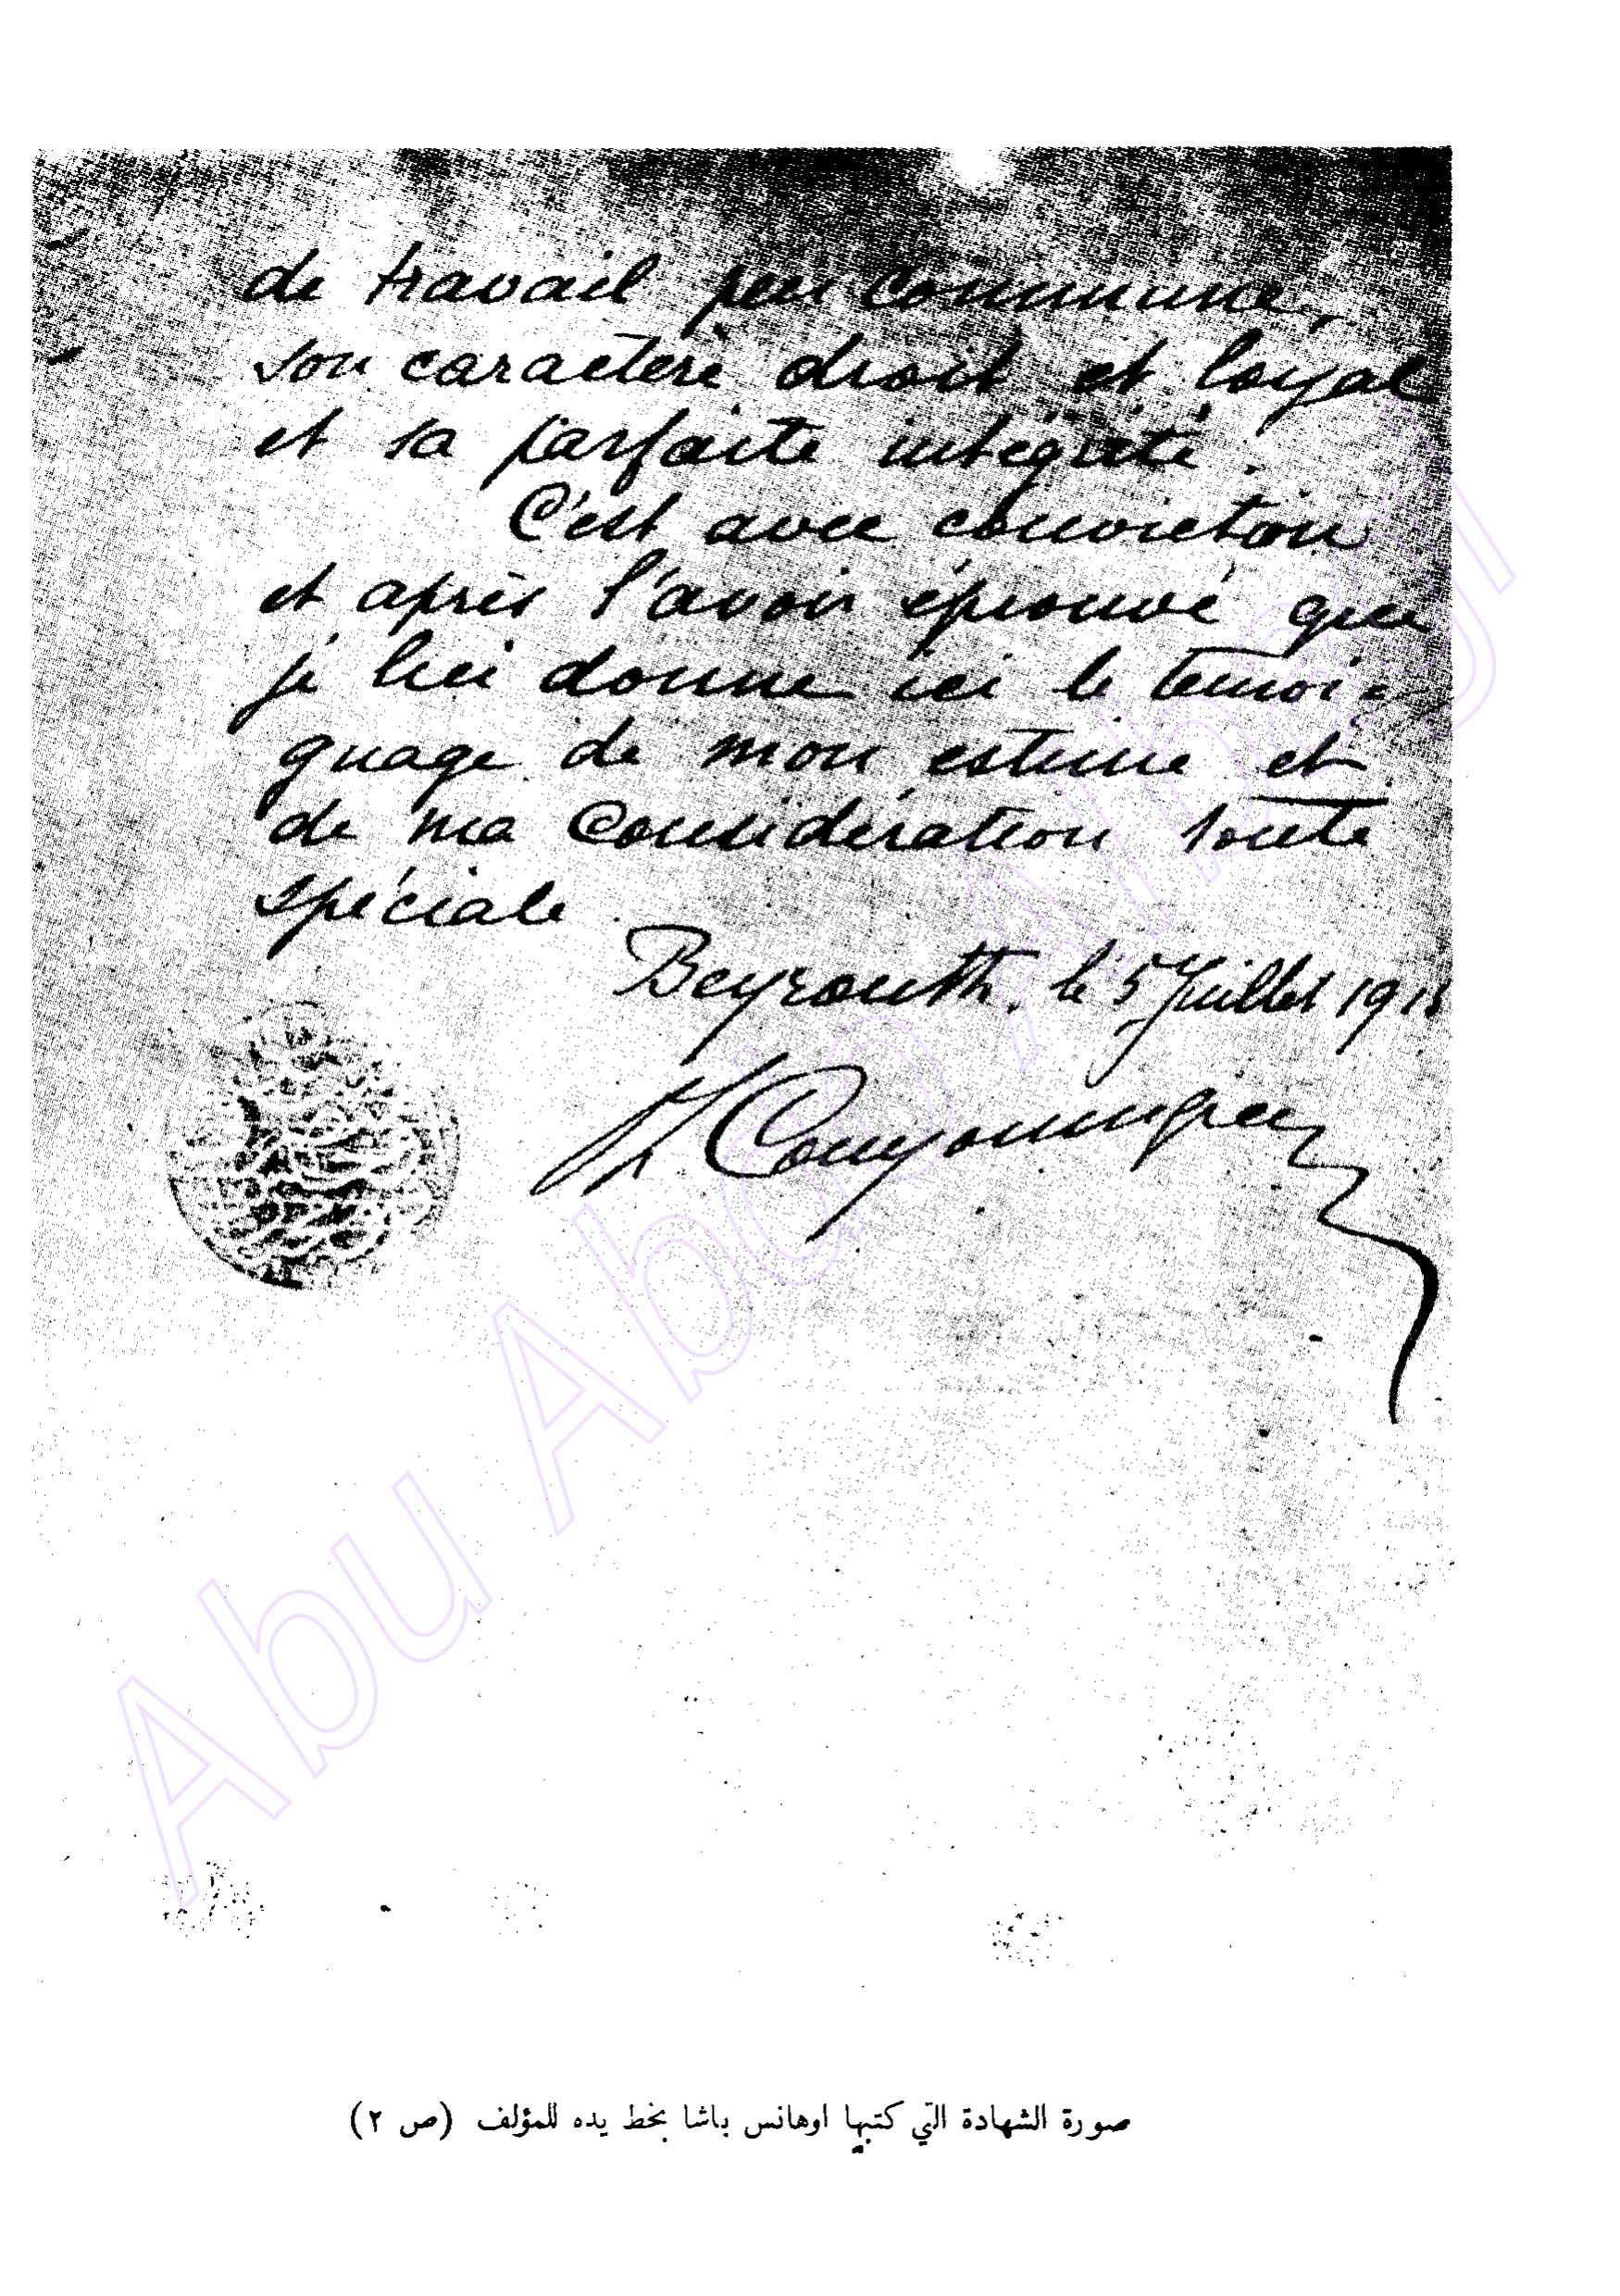 de travail peu commune,
son caractère droit et loyal
et sa parfaite intégrité.
C'est avec conviction
et après l'avoir éprouvé que
je lui donne ici le témoi-
gnage de mon estime et
de ma considération toute
spéciale.
Beyrouth, le 5 Juillet 191
Couyoumgian
صورة الشهادة التي كتبها اوهانس باشا بخط يده للمؤلف (ص ٢)
Abu Abdo Albagl